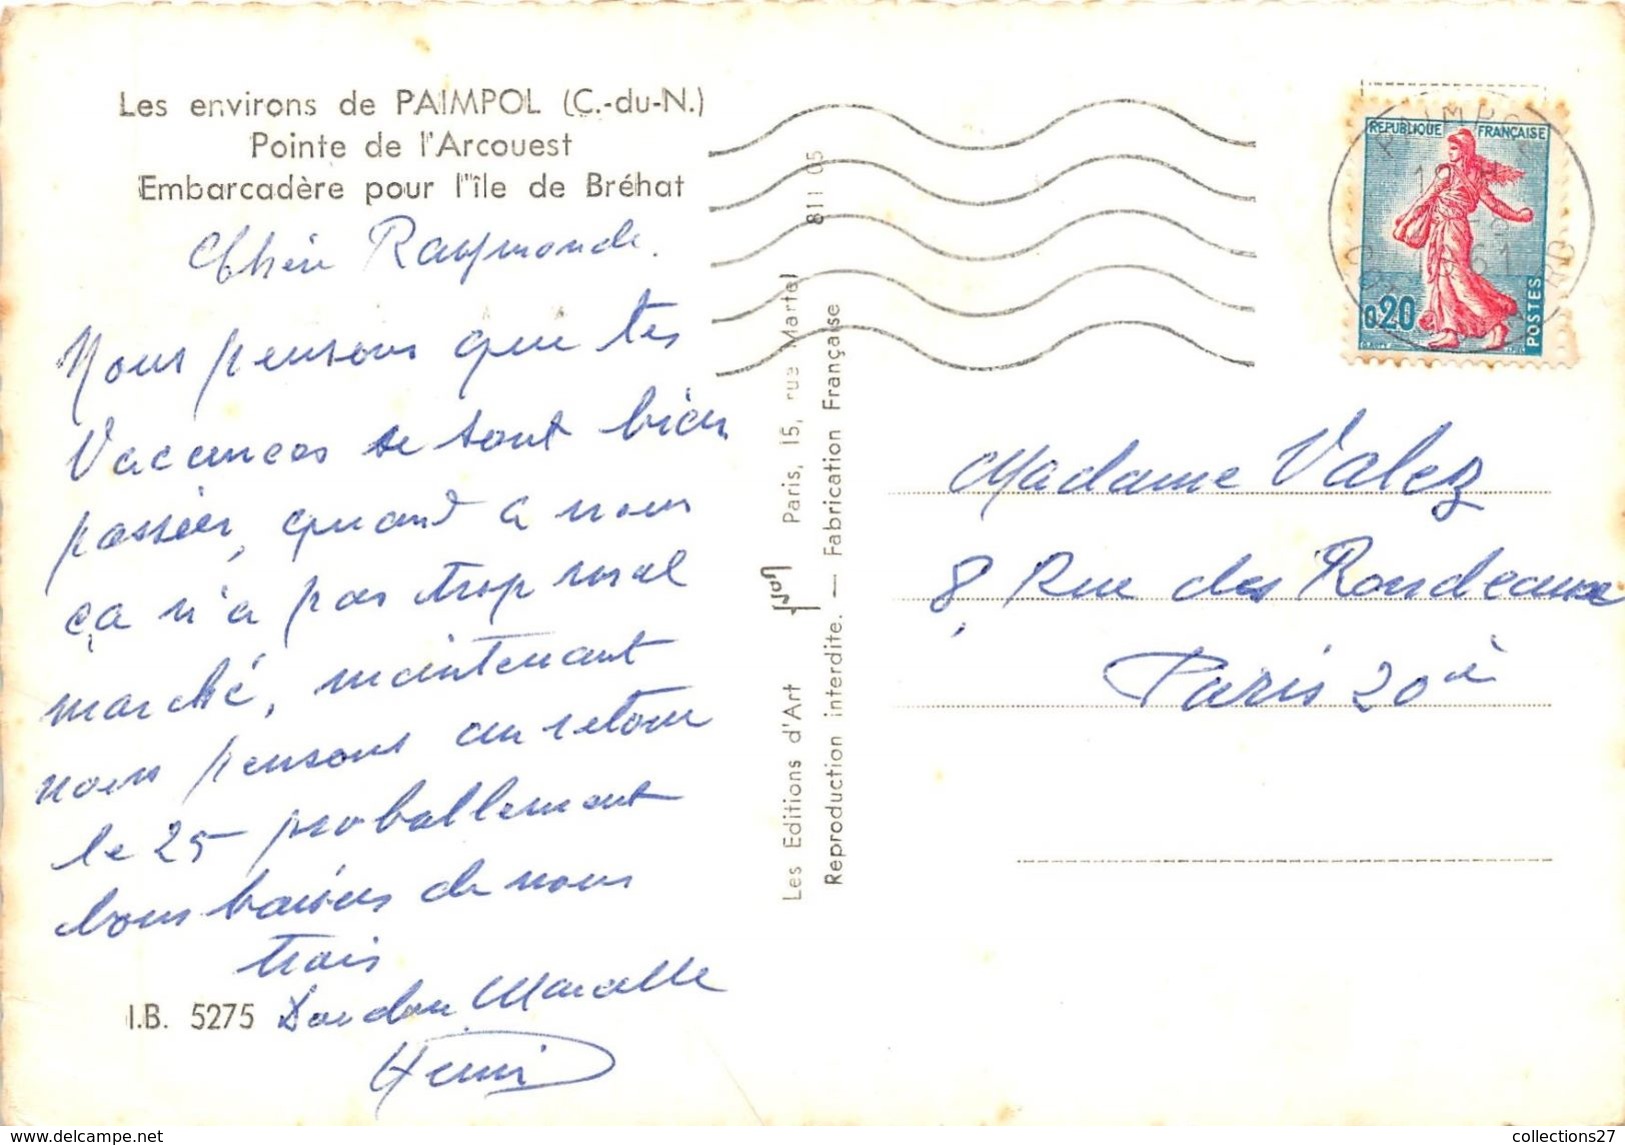 Les environs de PAIMPOL (C.-du-N.)
Pointe de l'Arcouest
Embarcadère pour l'île de Bréhat
Chère Raymonde.
Nous pensons que tes
Vacances se sont bien
passées, quant a nous
ça n'a pas trop mal
marché, maintenant
nous pensons au retour
le 25 proballement
bons baisers de nous
trois
Marcelle
Henri
I.B. 5275
Les Editions d'Art Paris, 15, rue Martel 811 05
Reproduction interdite. — Fabrication Française
REPUBLIQUE FRANÇAISE
0,20
POSTES
PAIMPOL
61
Madame Valez
8, Rue des Rondeaux
Paris 20è
collections27